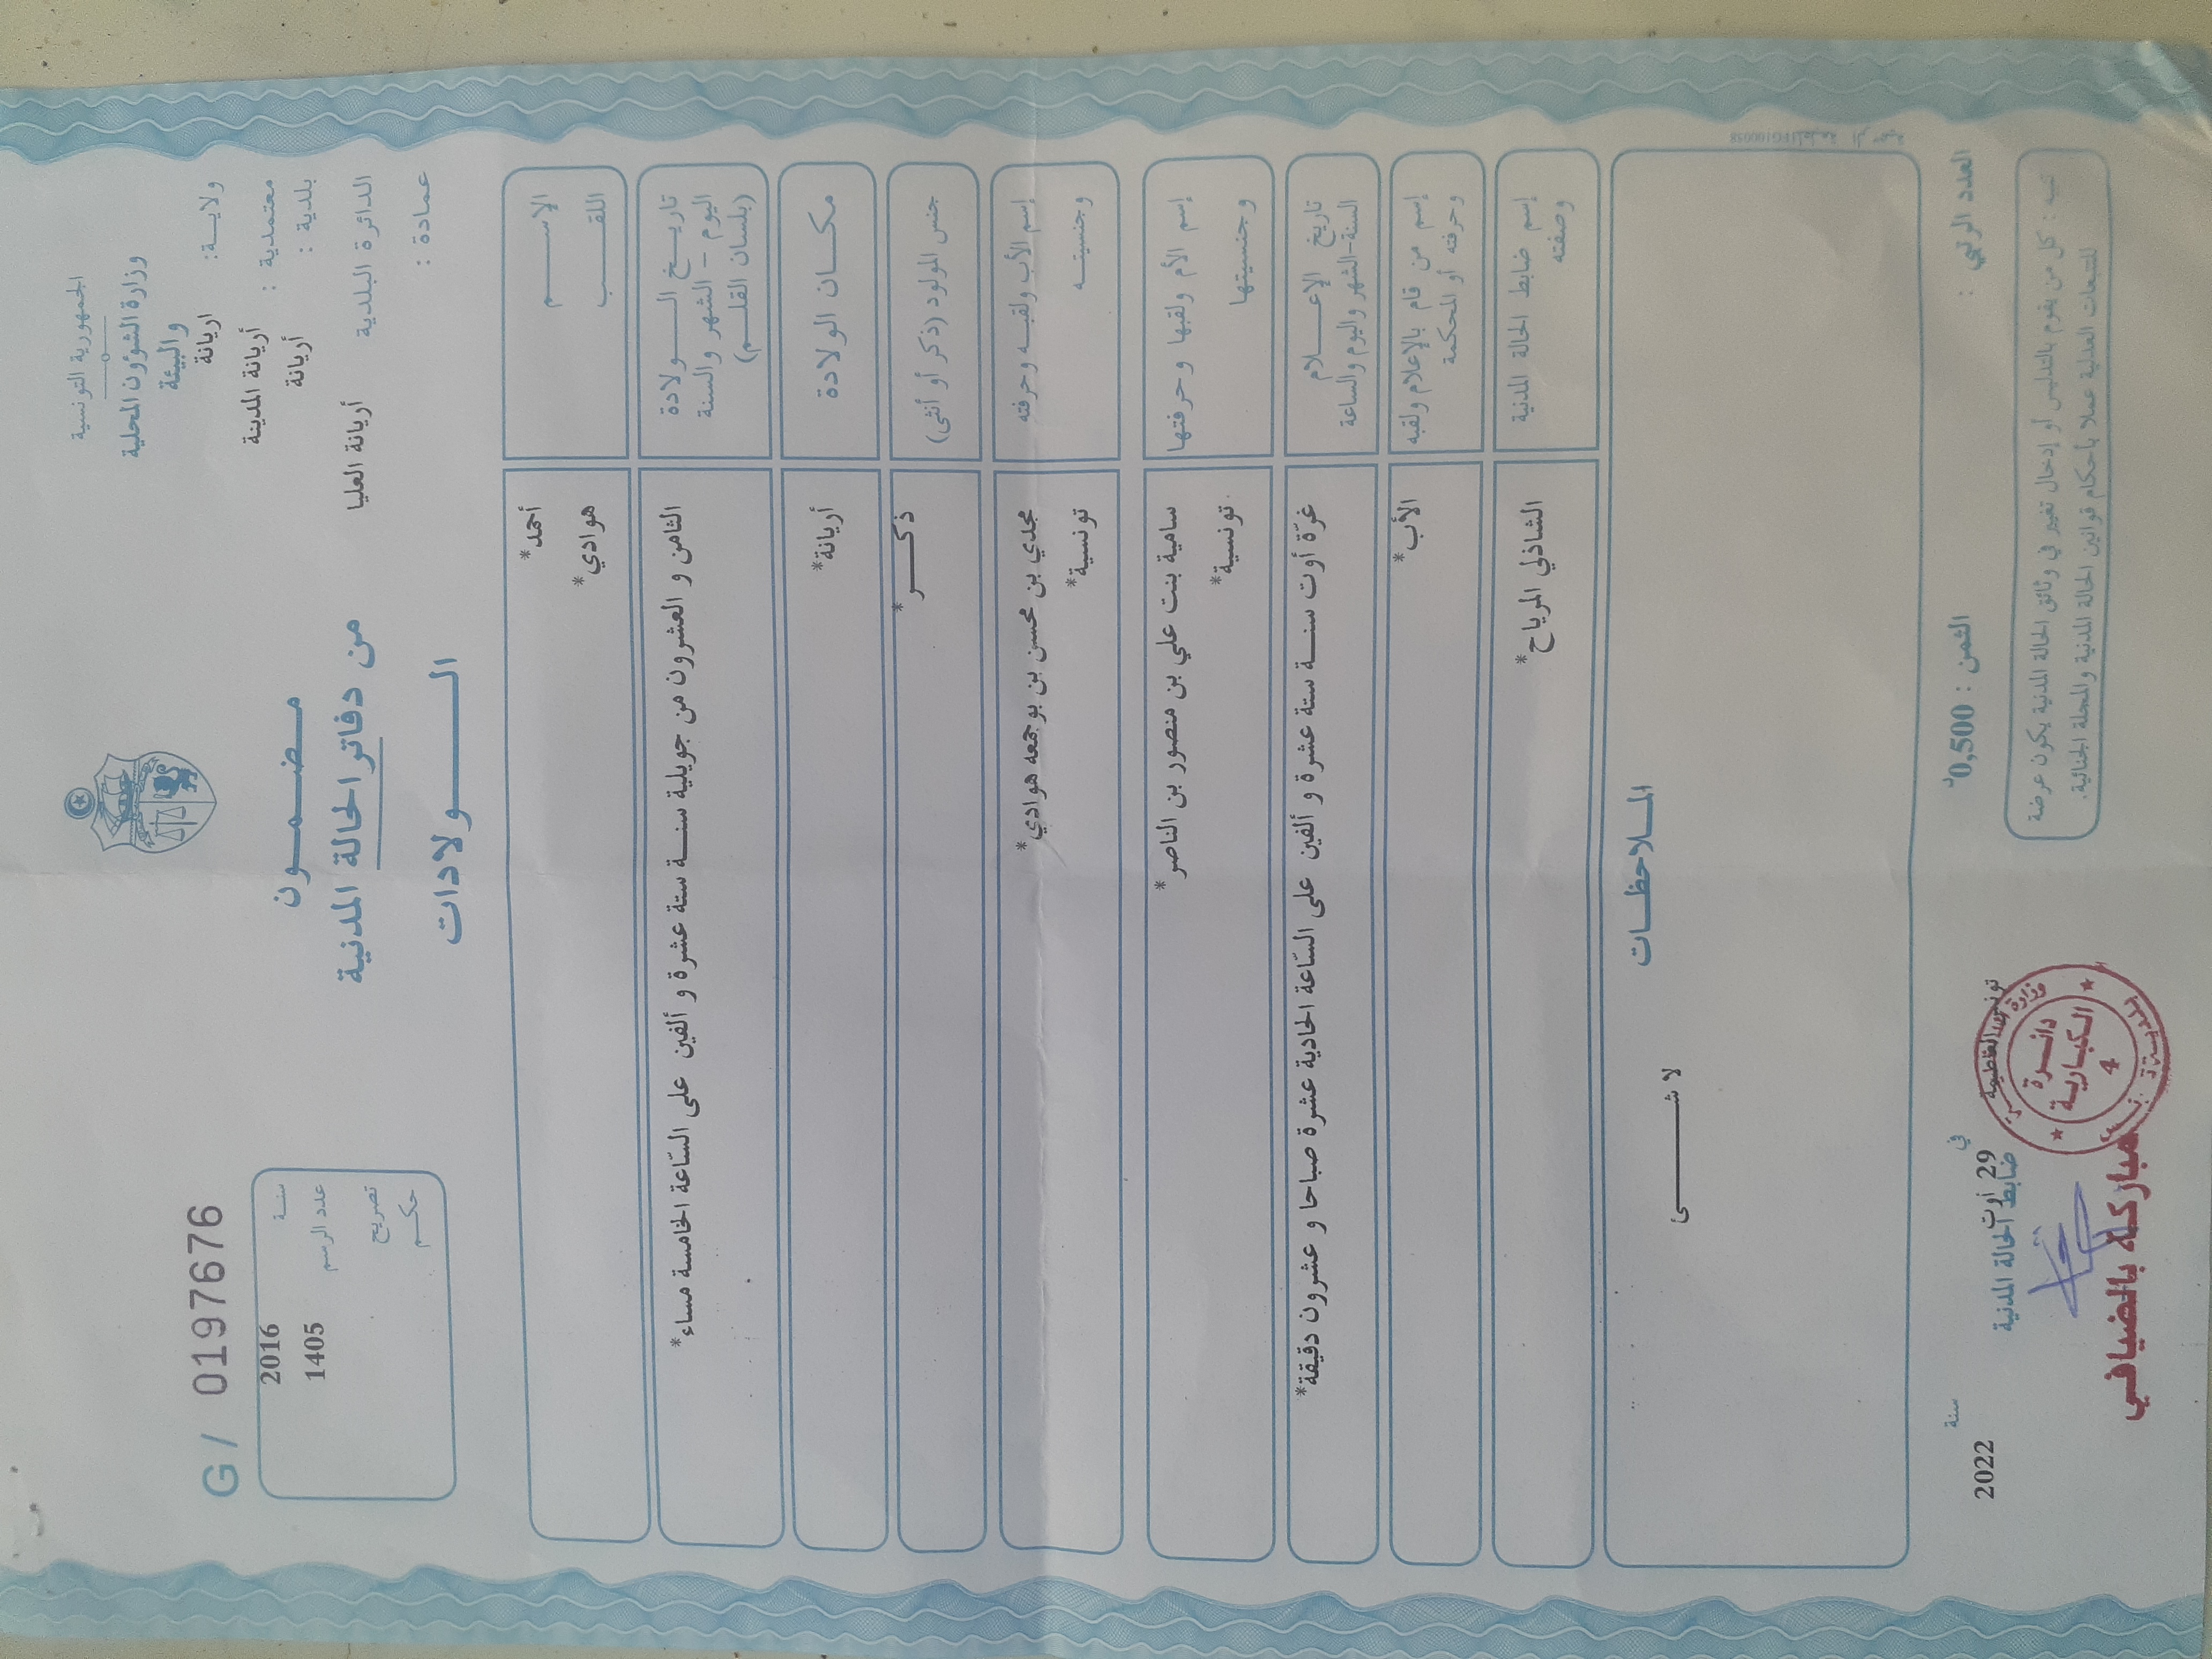 الجمهورية التونسية
وزارة الشؤون المحلية
والبيئة
ولاية: اريانة
معتمدية : أريانة المدينة
بلدية : أريانة
الدائرة البلدية أريانة العليا
عمادة :
G/ 0197676
سنة 2016
عدد الرسم 1405
تصريح
حكم
مضمون
من دفاتر الحالة المدنية
الولادات
الإسم أحمد*
اللقب هوادي*
تاريخ الولادة
اليوم - الشهر والسنة
(بلسان القلم)
الثامن و العشرون من جويلية سنة ستة عشرة و ألفين على السّاعة الخامسة مساء*
مكان الولادة أريانة*
جنس المولود (ذكر أو أنثى) ذكر*
إسم الأب ولقبه وحرفته مجدي بن محسن بن بوجمعه هوادي*
وجنسيته تونسية*
إسم الأم ولقبها وحرفتها سامية بنت علي بن منصور بن الناصر*
وجنسيتها تونسية*
تاريخ الإعلام
السنة-الشهر واليوم والساعة
غرّة أوت سنة ستة عشرة و ألفين على السّاعة الحادية عشرة صباحا و عشرون دقيقة*
إسم من قام بالإعلام ولقبه الأب*
وحرفته أو المحكمة
إسم ضابط الحالة المدنية الشاذلي المرياح*
وصفته
الملاحظات
لا شئ
العدد الرتبي :
الثمن : 0,500د
في 29 أوت سنة 2022
ضابط الحالة المدنية
تنبيه : كل من يقوم بالتدليس أو إدخال تغيير في وثائق الحالة المدنية يكون عرضة
للتتبعات العدلية عملا بأحكام قوانين الحالة المدنية والمجلة الجنائية.
دائرة
الكبارية
4
مباركة بالضيافي